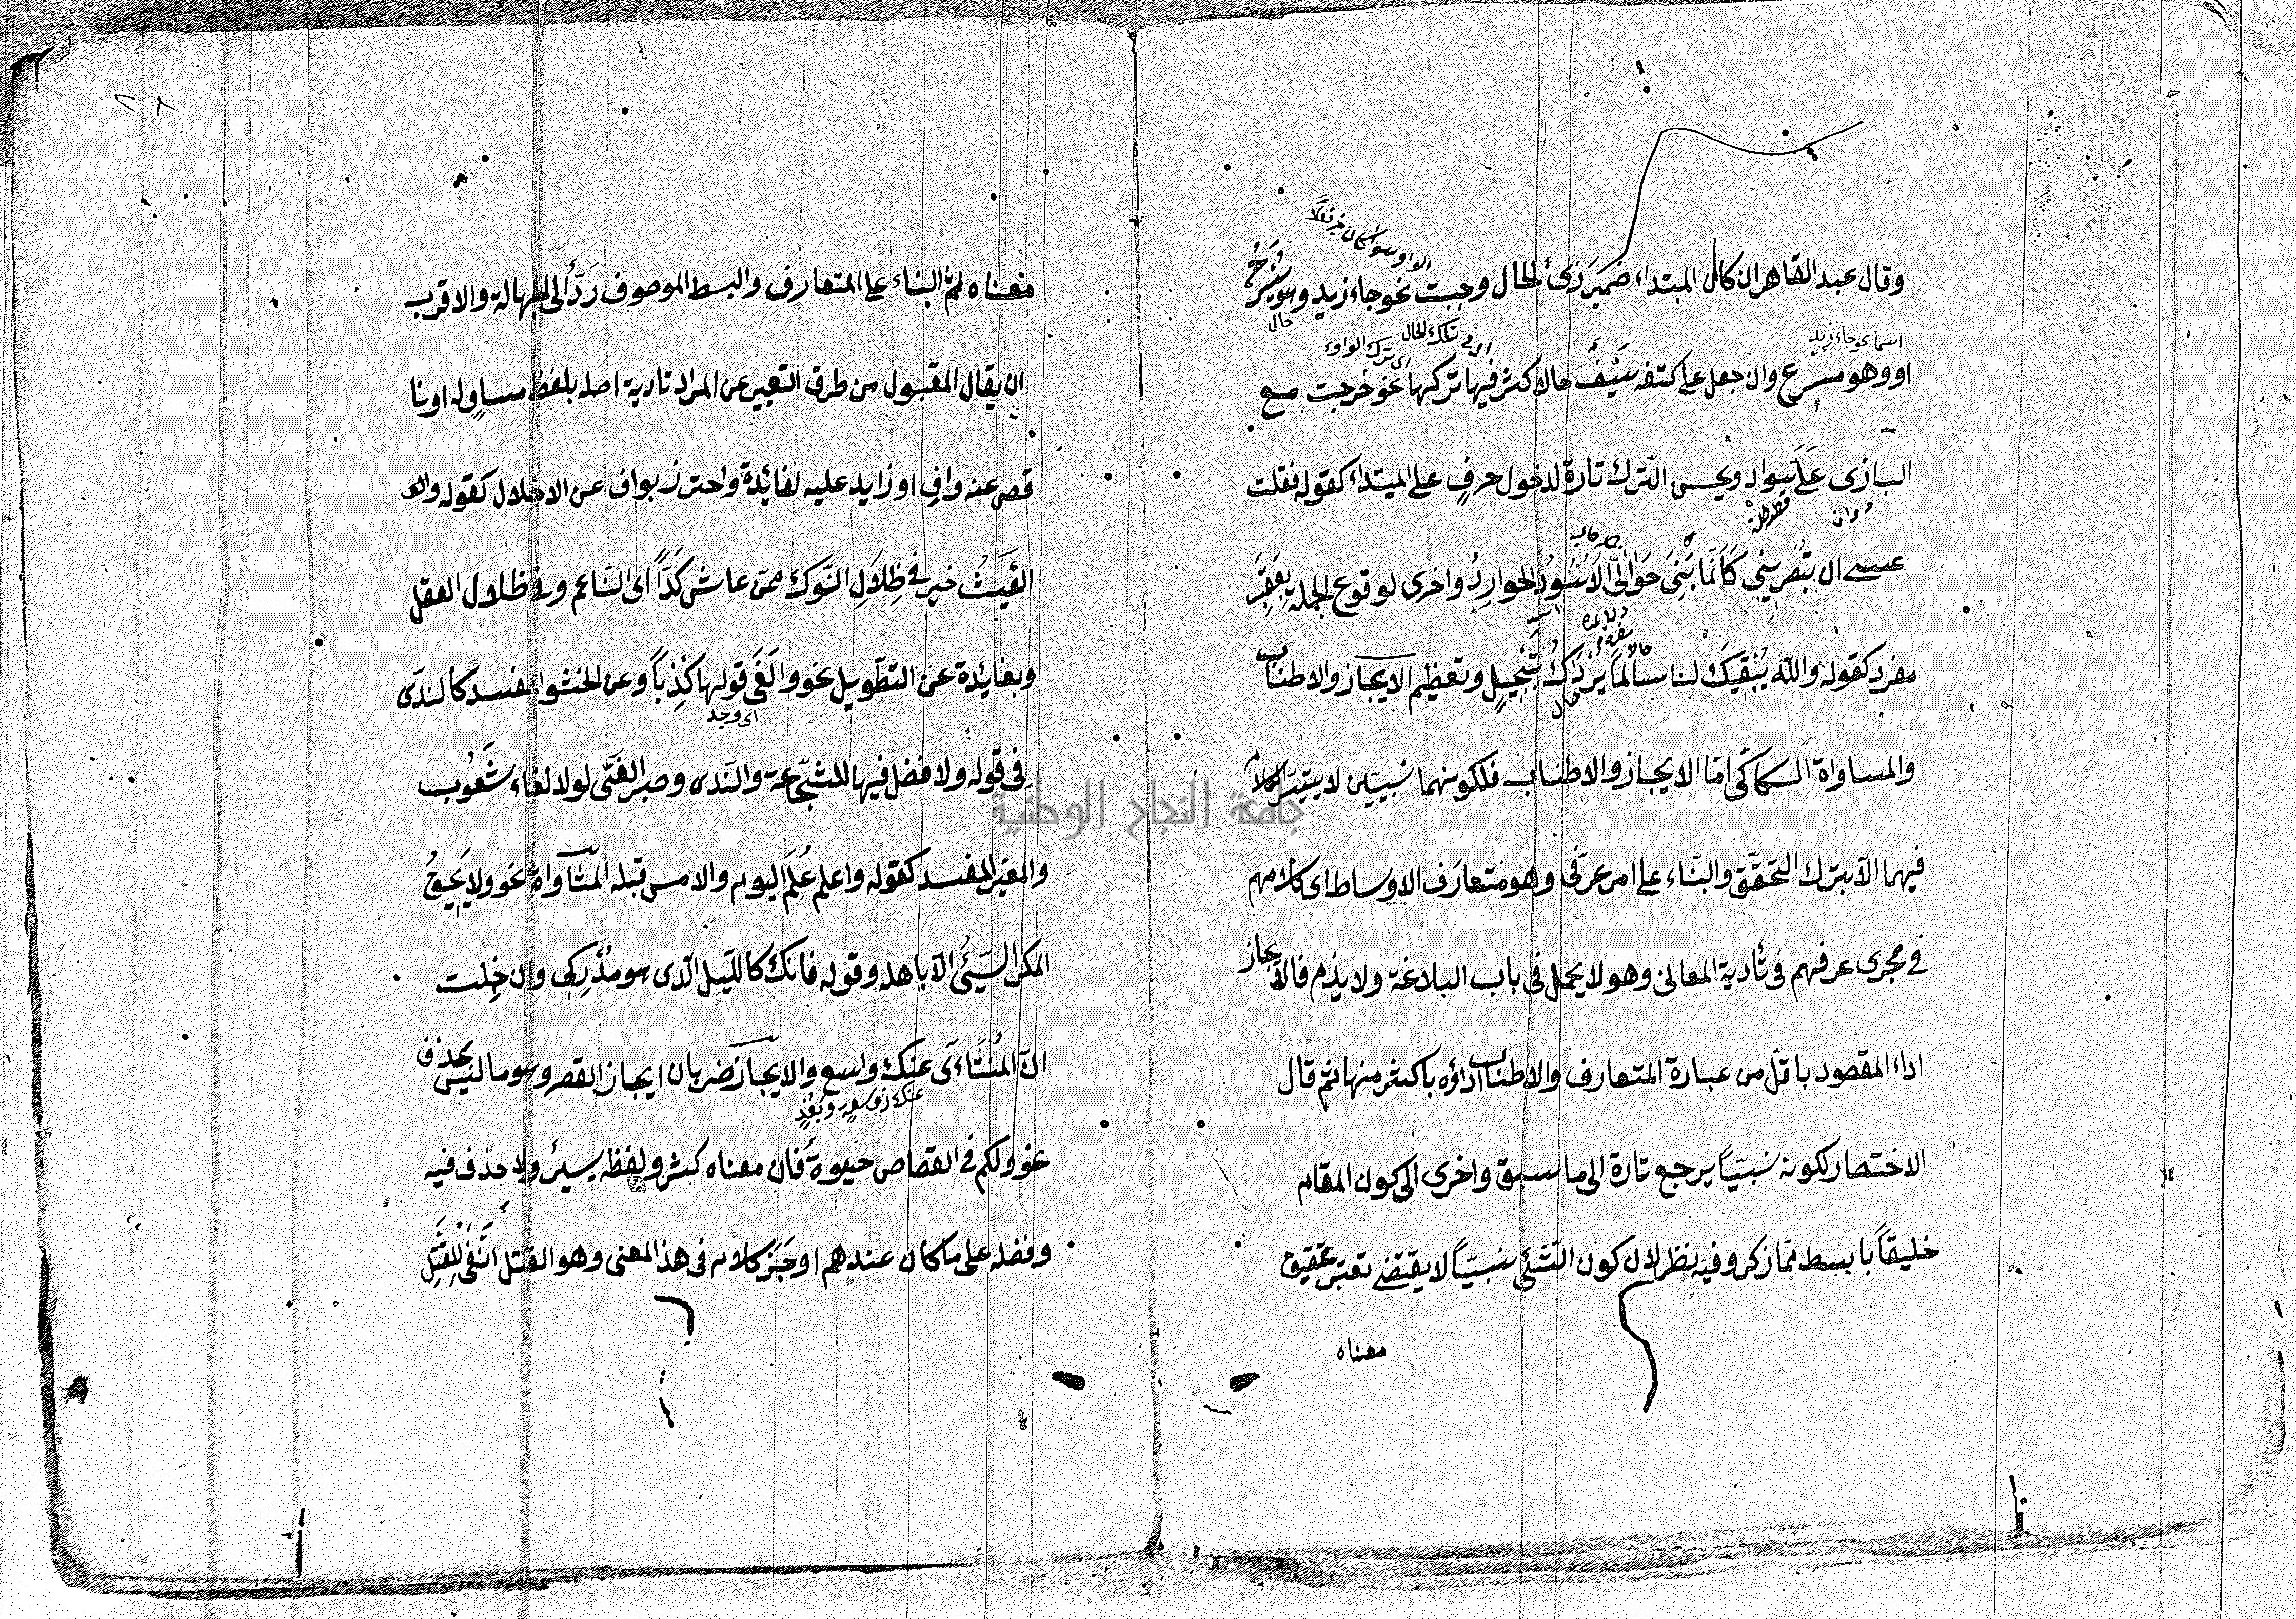 وقال عبد القاهر ان كان المبتداء ضمير ذى الحال وجبت نحو جاء زيد وهو يسرع
او وهو مسرع وان جعل على كتفه سَيْفٌ حالا كثر فيها تركها نحو خرجت مع
البازى عَلَىَّ سواد ويحسن الترك تارة لدخول حرفٍ على المبتداء كقوله فقلت
عسى ان تبصرينى كَاَنَّما بَنِىَ حَوَالَىَّ الاُسُودُ الحوارِدُ واخرى لوقوع الجملة بِعَقِبِ
مفرد كقوله والله يُبْقِيكَ لنا سالماً بُرْدَاكَ تَبْجِيلٍ وتعظيم الايجاز والاطناب
والمساواة السكاكى امّا الايجاز والاطناب فلكونهما نسبيّين لا يتيسّر الكلام
فيهما الّا بترك التحقّق والبناء على امر عرفّى وهو متعارَف الاوساط اى كلامهم
فى مجرى عرفهم فى تأدية المعانى وهو لا يحمل فى باب البلاغة ولا يذم فالايجاز
اداء المقصود باقل من عبارة المتعارف والاطناب اداؤه باكثر منها ثم قال
الاختصار لكونه نسبيّاً يرجع تارة الى ما سبق واخرى الى كون المقام
خليقاً بابسط ممّا ذكر وفيه نظر لان كون الشّئ نسبيّاً لا يقتضى تعسّر تحقيق
معناه
٢٨
معناه ثمّ البناء على المتعارف والبسط الموصوف رَدٌّ الى الجهالة والاقرب
ان يقال المقبول من طرق التعبير عن المراد تادية اصله بلفظ مساوٍ له او نا
قص عنه وافٍ او زايد عليه لفائدة واحترز بواف عن الاخلال كقوله والـ
العَيشُ خير فى ظِلَالِ النّوك ممّن عاش كدّاً اى الناعم وفى ظلال العقل
وبفايدة عن التطويل نحو والَفَى قولها كَذِباً وعن الحشو المفسد كالندى
اى وجد
فى قوله ولا فضل فيها للشجاعة والندى وصبر الفتى لولا لقاء شَعُوب
والغير المفسد كقوله واعلم عِلمَ اليوم والامس قبله المساواة نحو ولا يَحِيقُ
المكر السيّئُ الّا باهله وقوله فانك كالليل الّذى هو مُدْرِكِى وان خِلت
انّ المُنْتَأى عنك واسع والايجاز ضربان ايجاز القصر وهو ما ليس بحذف
نحو ولكم فى القصاص حيوة فان معناه كثير ولفظه يسير ولا حذف فيه
وفضله على ما كان عندهم اوجَز كلام فى هذا المعنى وهو القتل اَنْفَى لِلقَتِلِ
جامعة النجاح الوطنية